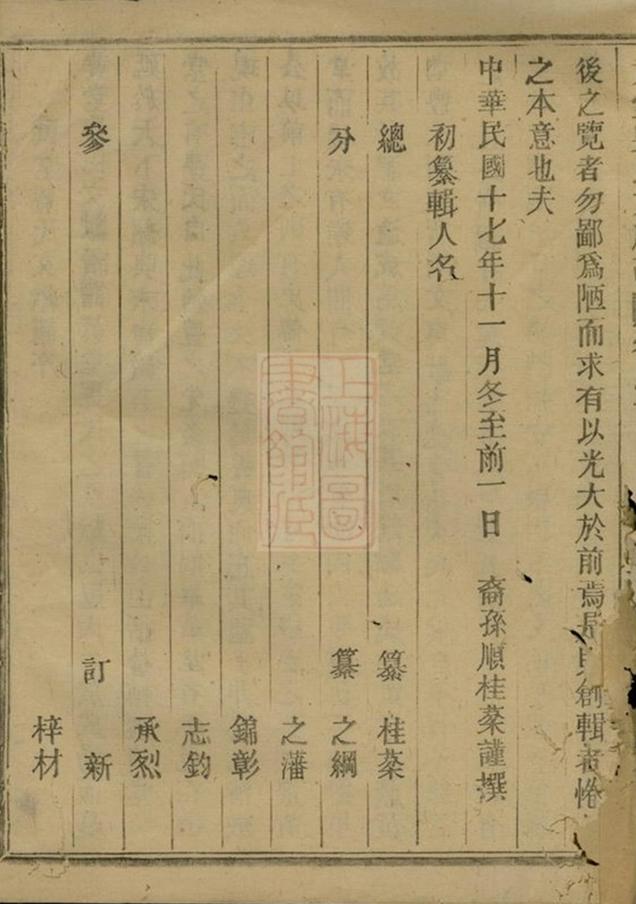 後之覽者勿鄙爲陋而求有以光大於前焉是則創輯者惓
之本意也夫
中華民國十七年十一月冬至前一日 裔孫順桂棻謹撰
初纂輯人名
總 纂 桂棻
分 纂 之綱
之藩
錦彰
志鈞
承烈
參 訂 新
梓材
上海圖書館藏